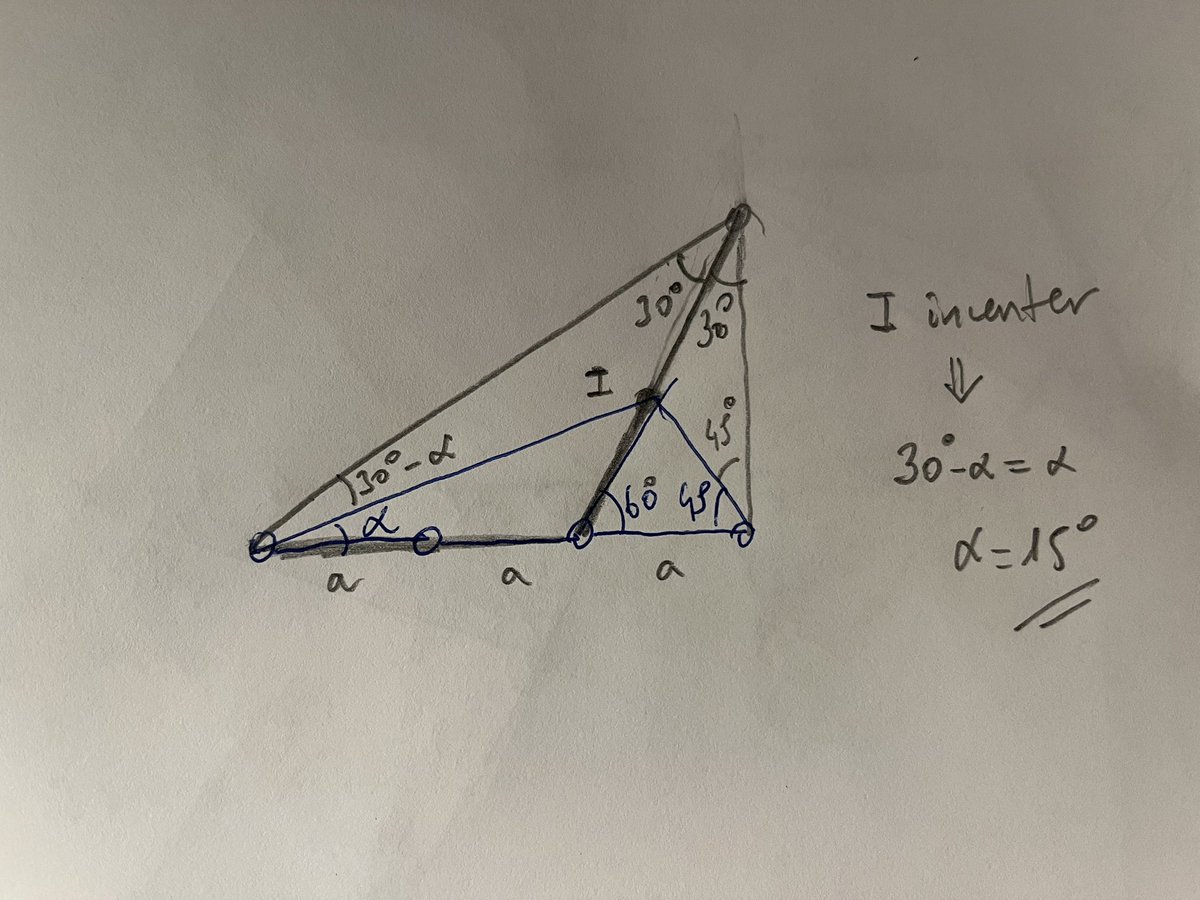 30°
30°
I
45°
30°-α
α
60°
45
a
a
a
I incenter
⇓
30°-α = α
α = 15°